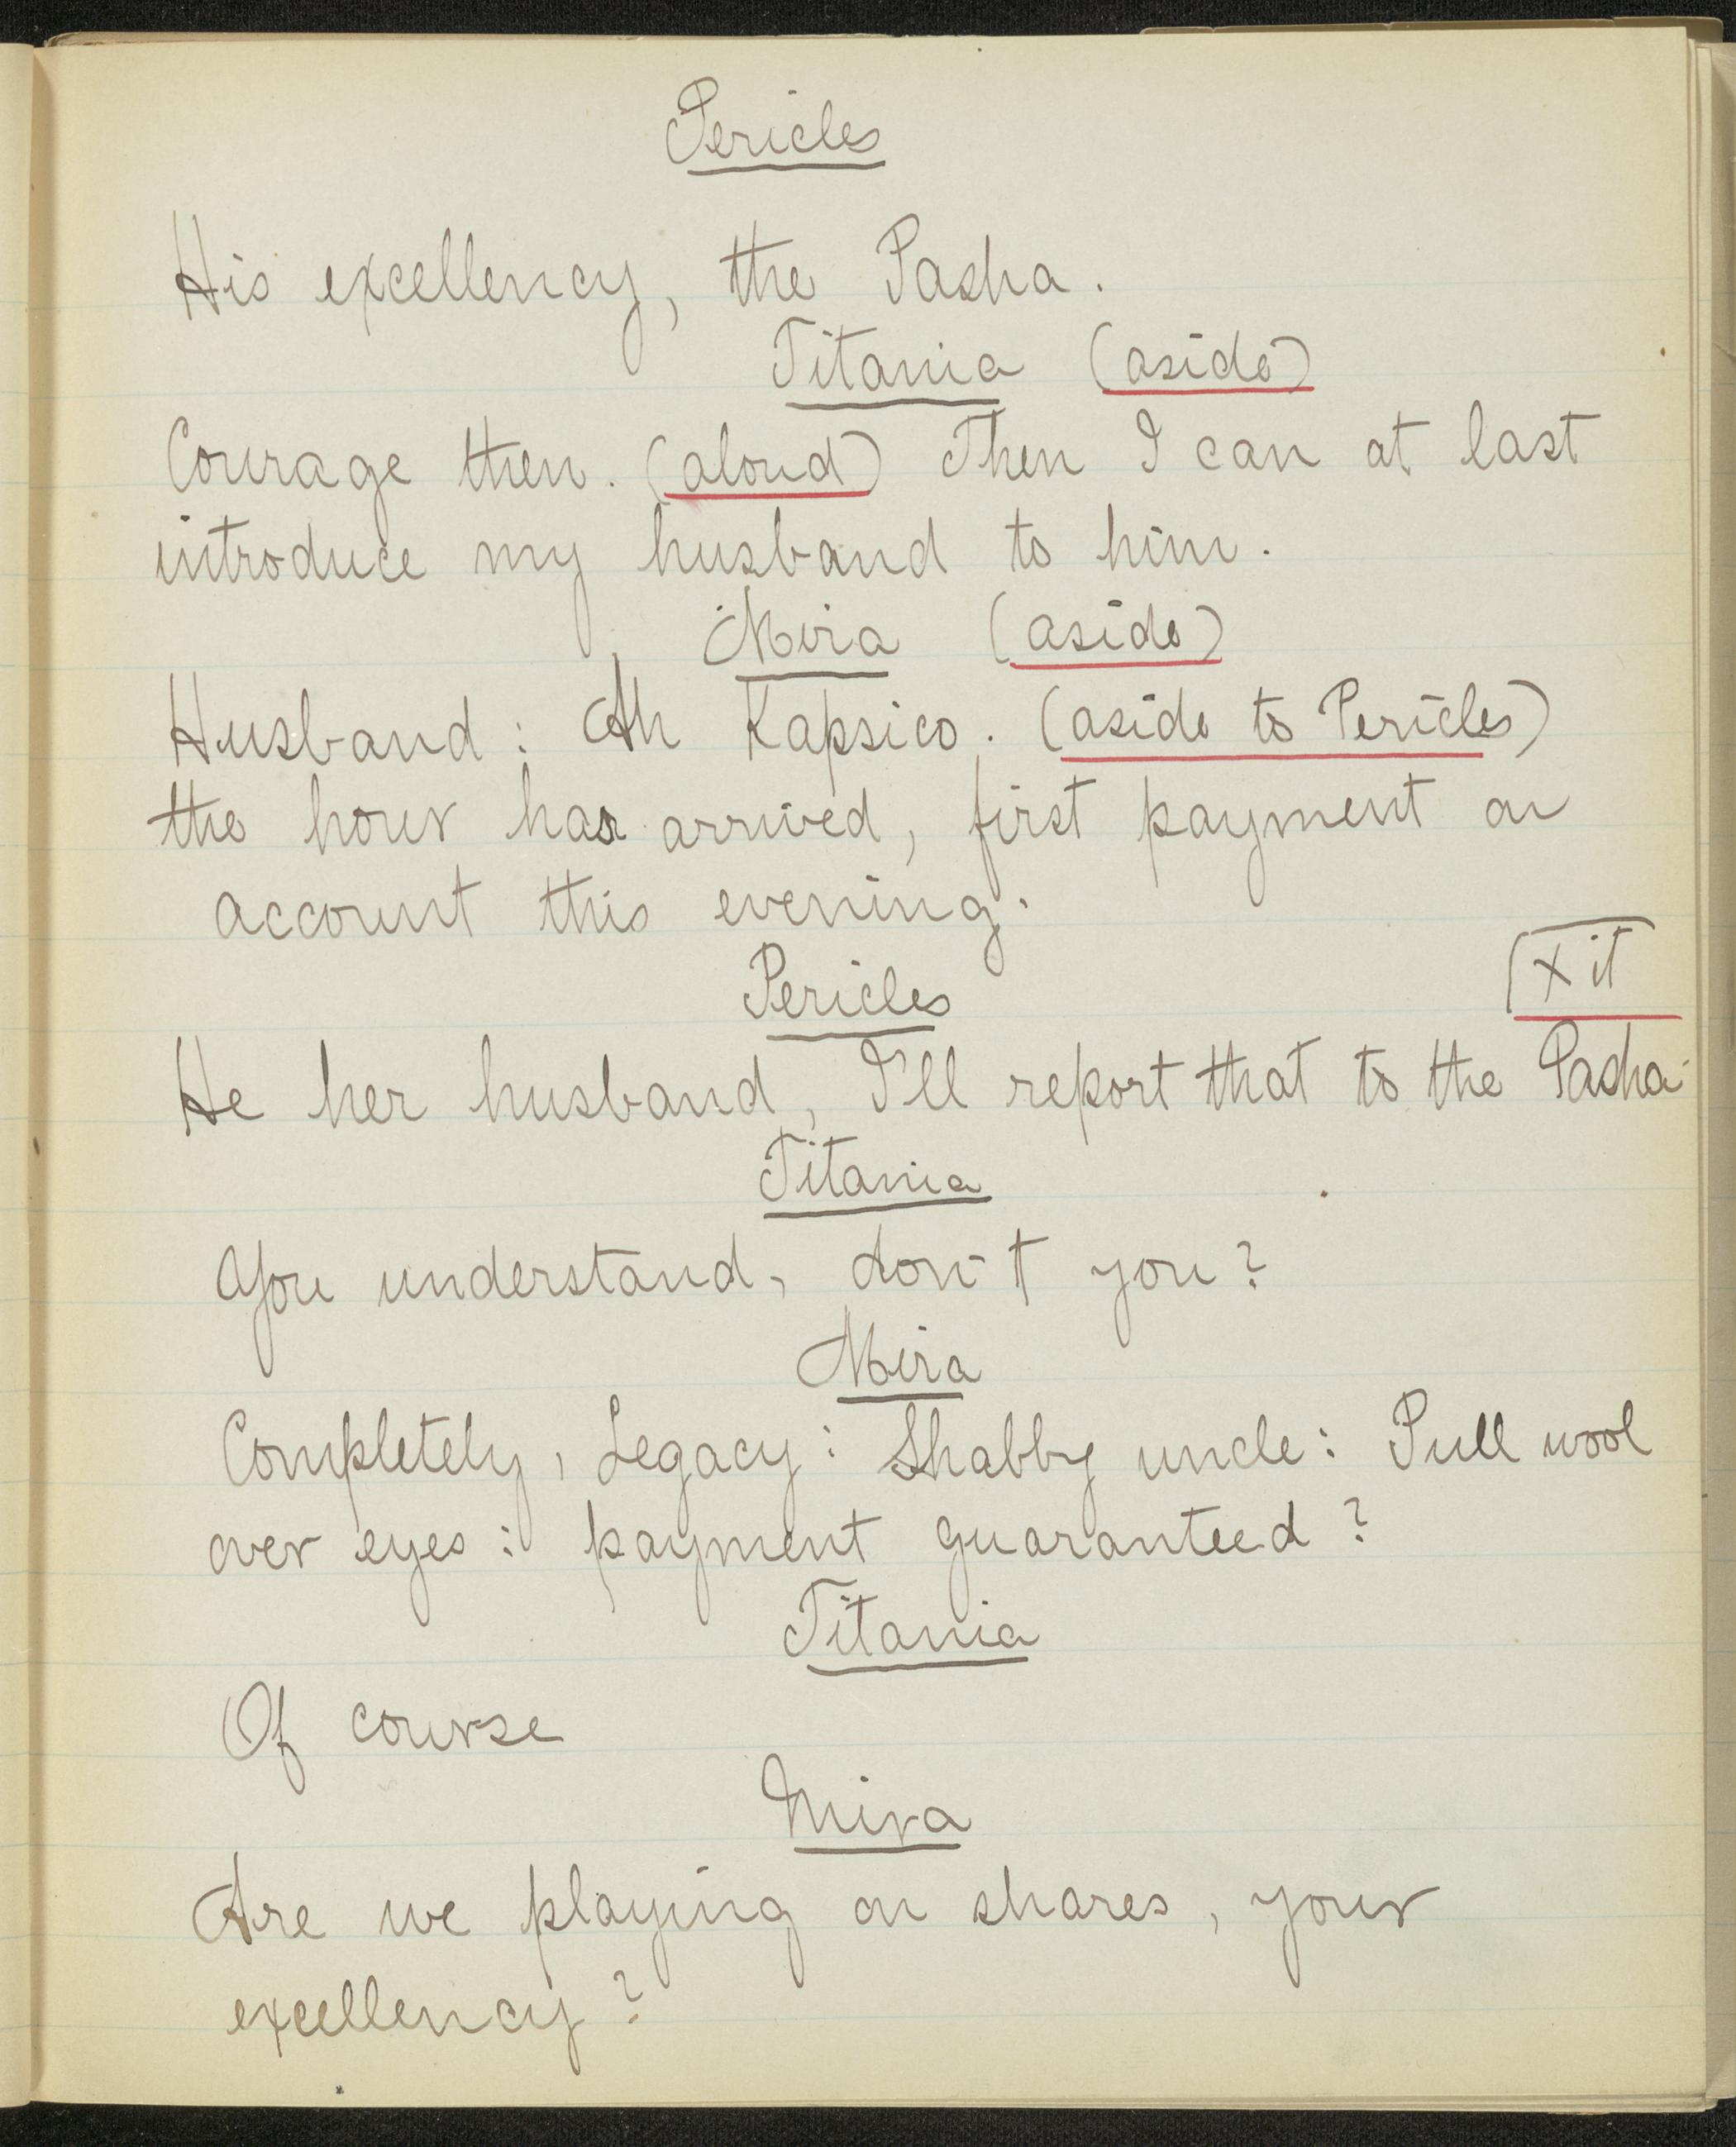 Pericles
His excellency, the Pasha.
Titania (aside)
Courage then. (aloud) Then I can at last
introduce my husband to him.
Mira (aside)
Husband: Ah Kapsico. (aside to Pericles)
the hour has arrived, first payment on
account this evening.
Pericles
Xit
He her husband, I'll report that to the Pasha.
Titania
You understand, don't you?
Mira
Completely, Legacy: Shabby uncle: Pull wool
over eyes: payment guaranteed?
Titania
Of course
Mira
Are we playing on shares, your
excellency?